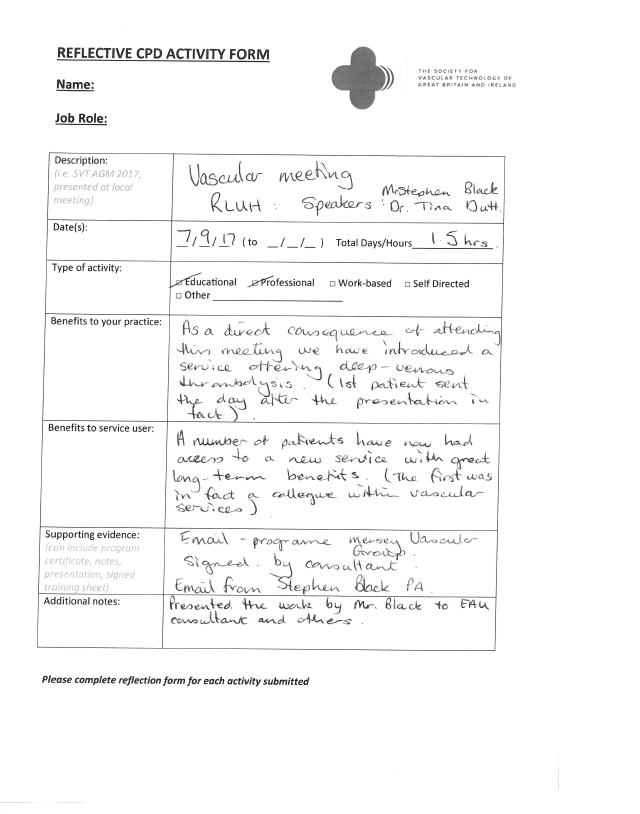 REFLECTIVE CPD ACTIVITY FORM
THE SOCIETY FOR
VASCULAR TECHNOLOGY OF
GREAT BRITAIN AND IRELAND
Name:
Job Role:
Description:
(i.e. SVT AGM 2017,
presented at local
meeting)
Vascular meeting
RLUH : Speakers : Mr Stephen Black
Dr. Tina Dutt.
Date(s):
7/9/17 ( to _/_/_ ) Total Days/Hours 1.5 hrs.
Type of activity:
☑ Educational ☑ Professional □ Work-based □ Self Directed
□ Other
Benefits to your practice:
As a direct consequence of attending
this meeting we have introduced a
service offering deep-venous
thrombolysis. (1st patient sent
the day after the presentation in
fact).
Benefits to service user:
A number of patients have now had
access to a new service with great
long-term benefits. (The first was
in fact a collegue within vascular
services)
Supporting evidence:
(can include program
certificate, notes,
presentation, signed
training sheet)
Email - programe Mersey Vascular
Group.
Signed. by consultant
Email from Stephen Black PA.
Additional notes:
Presented the work by Mr. Black to EAU
consultant and others.
Please complete reflection form for each activity submitted